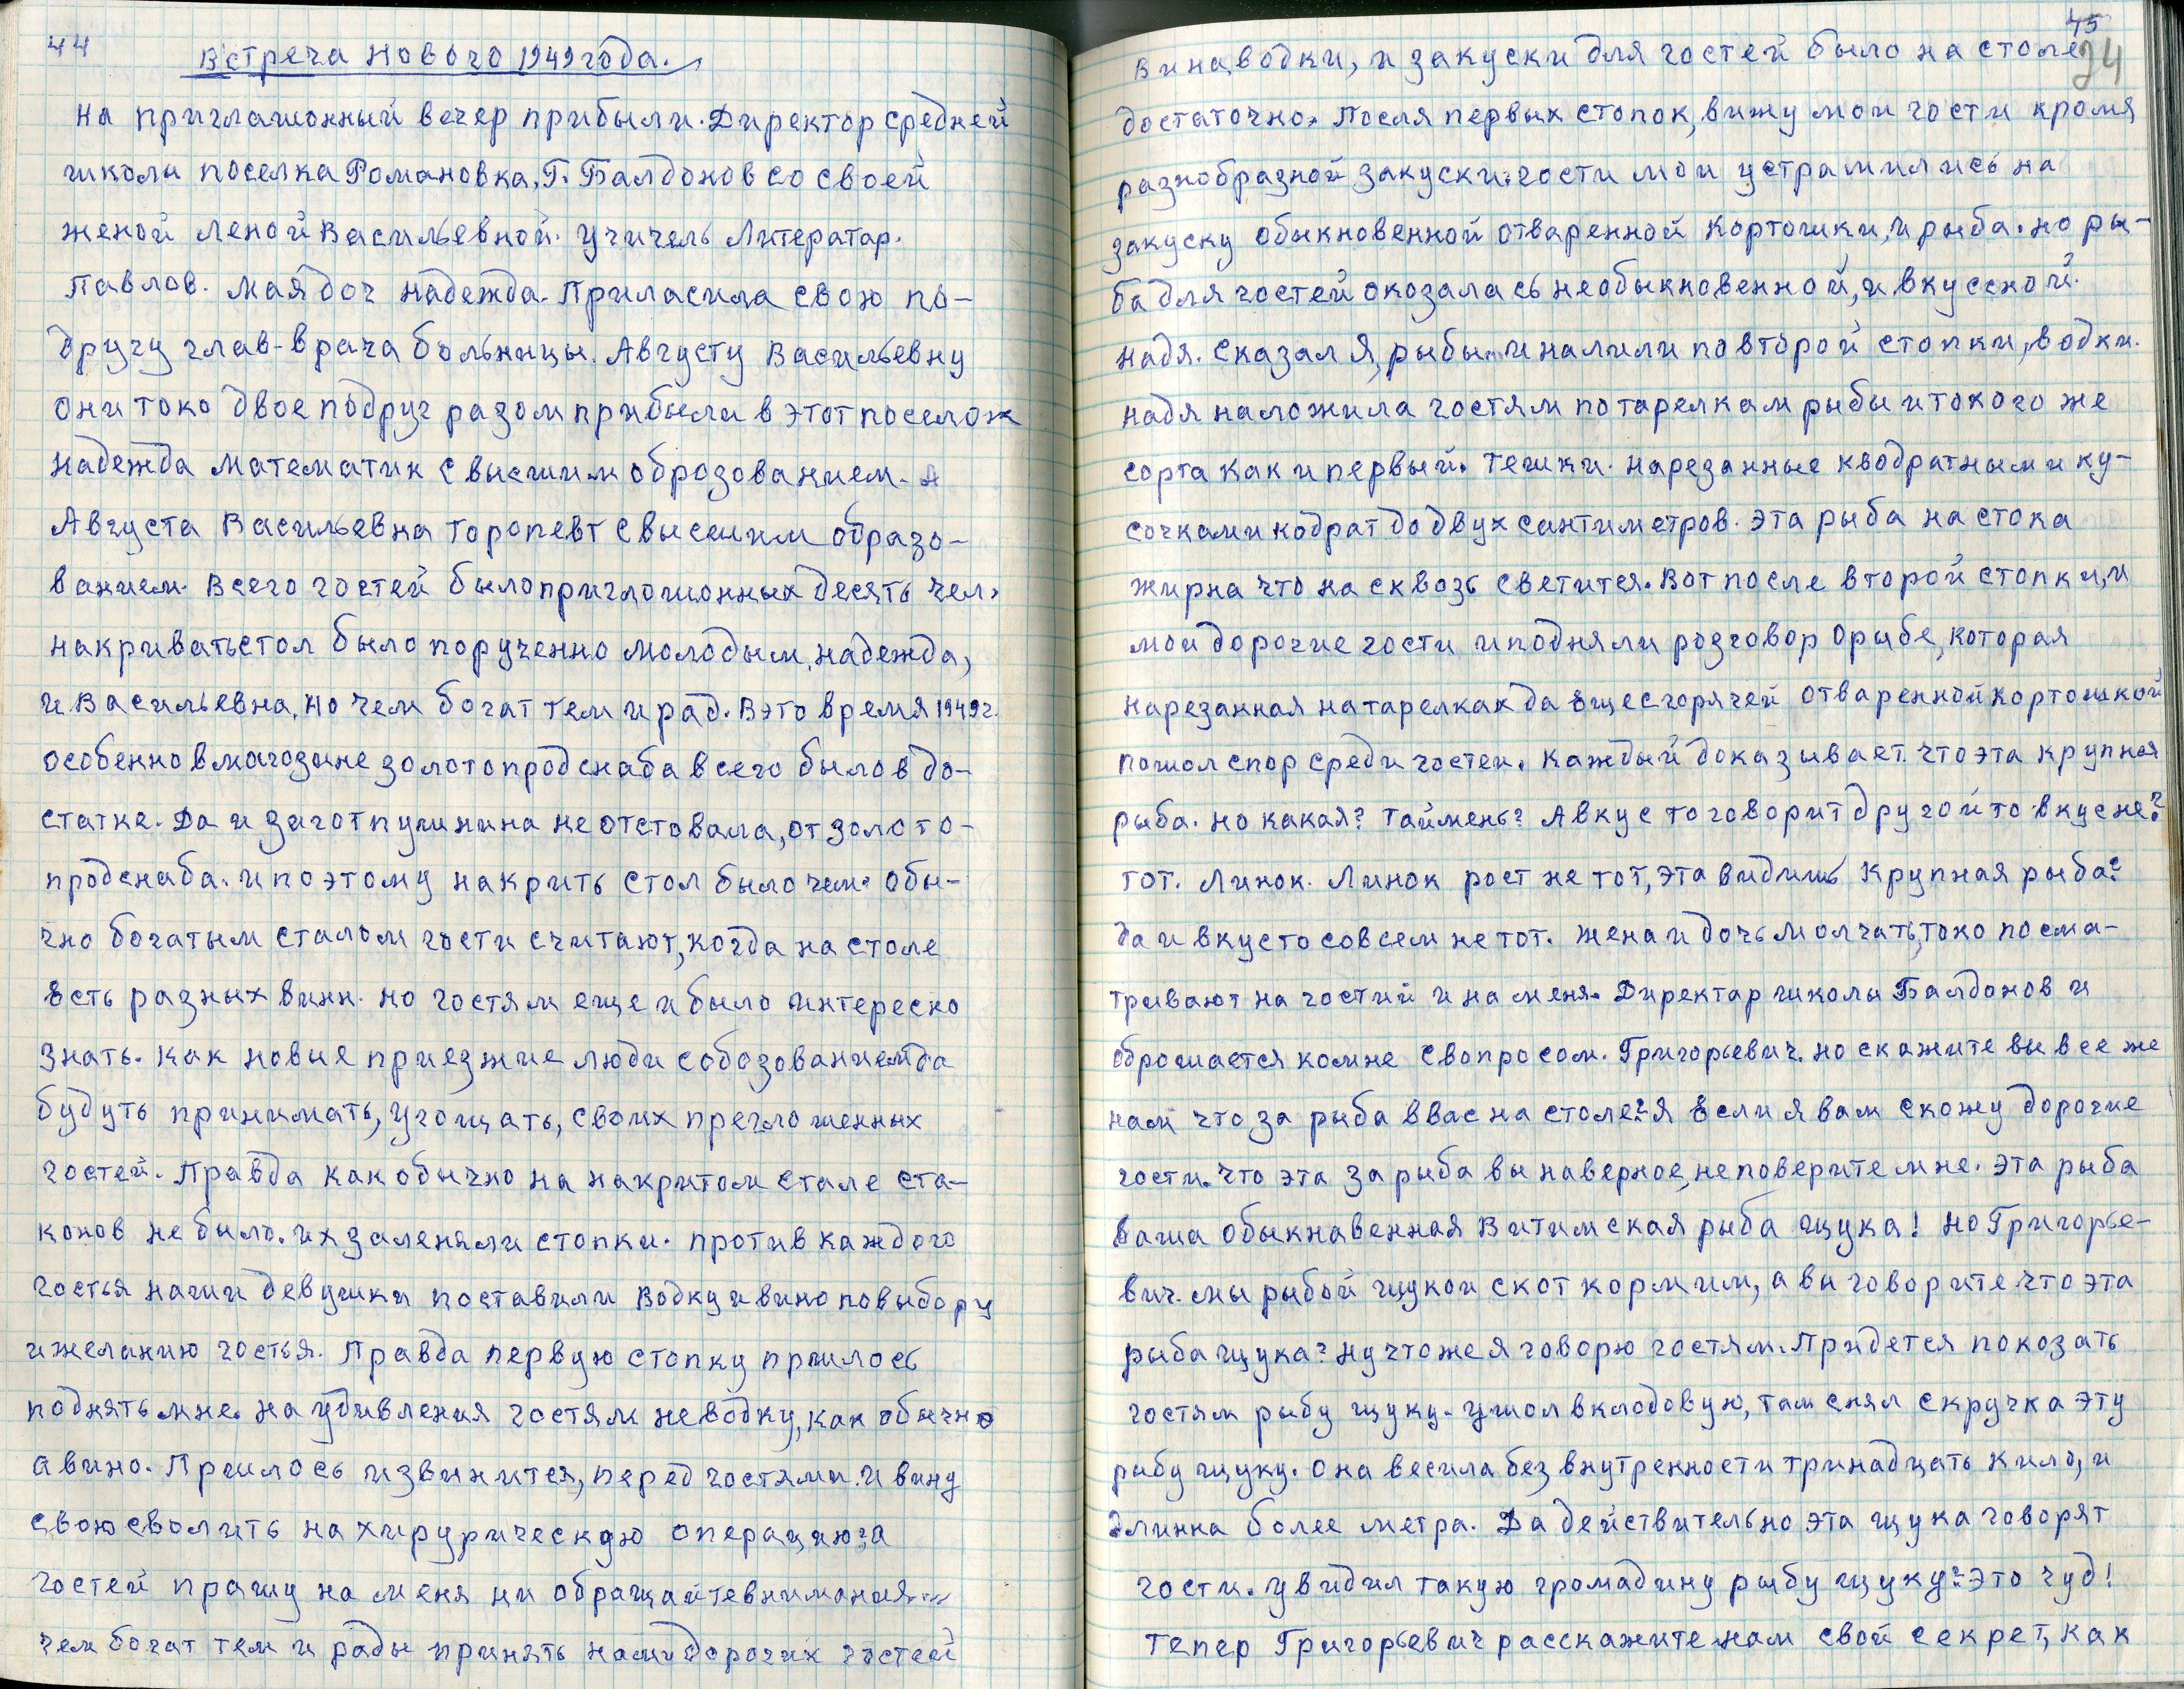 44
Встреча нового 1949 года.
На приглашонный вечер прибыли. Директор средней
школы поселка Романовка, Г. Балдонов со своей
женой Леной Васильевной. Учичель Литератар.
Павлов. Мая доч Надежда. Приласила свою по-
другу глав-врача больницы. Августу Васильевну
они токо двое подруг разом прибыли в этот поселож
Надежда математик с высшим оброзованием. А
Августа Васильевна торопевт с высшим образо-
ванием. Всего гостей было приглошонных десять чел.
накривать стол было порученно молодым, надежда,
и Васильевна, но чем богат тем и рад. В это время 1949 г.
особенно в магозине золотопродснаба всего было в до-
статке. Да и заготпушнина не отстовала, от золото-
продснаба. и поэтому накрить стол было чем. Обы-
чно богатым сталом гости считают, когда на столе
есть разных винн. но гостям еще и было интересно
знать. Как новые приезжие люди с обозованием да
будуть принимать, угощать, своих преглошенных
гостей. Правда как обычно на накритом стале ста-
конов не было. их заленяли стопки. против каждого
гостья наши девушки поставили водку и вино по выбору
и желанию гостья. Правда первую стопку пришлось
поднять мне. на удивления гостям не водку, как обычно
а вино. Пришлось извинится, перед гостями. и вину
свою сволить на хирурическую операцию: а
гостей прашу на меня ни обращайте внимания....
чем богат тем и рады принять наши дорогих гостей
45
34
Вина, водки, и закуски для гостей было на столе
достаточно. После первых стопок, вижу мои гости кромя
разнобразной закуски. гости мои устрамились на
закуску обыкновенной отваренной кортошки, и рыба. но ры-
ба для гостей окозалась необыкновенной, и вкусской.
надя. сказал я, рыбы... и налили по второй стопки, водки.
надя наложила гостям по тарелкам рыбы и токого же
сорта как и первый. тешки. нарезанные кводратными ку-
сочками кодрат до двух сантиметров. Эта рыба на стока
жирна что на сквозь светится. Вот после второй стопки, и
мои дорогие гости и подняли розговор о рыбе, которая
нарезанная на тарелках да еще с горячей отваренной кортошкой
пошол спор среди гостеи. Каждый доказывает что эта крупная
рыба. но какая? таймень? А вкус то говорит другой то вкус не?
тот. Линок. Линок рост не тот, эта видишь крупная рыба?
да и вкус то совсем не тот. жена и дочь молчать, токо посма-
тривают на гостий и на меня. Директар школы Балдонов и
оброшается комне с вопросом. Григорьевич. но скажите вы все же
нам что за рыба в вас на столе? я если я вам скожу дорогие
гости. что эта за рыба вы наверное, не поверите мне. эта рыба
ваша обыкнавенная Витимская рыба щука! но Григорье-
вич. мы рыбой щукои скот кормим, а вы говорите что эта
рыба щука? ну что же я говорю гостям. Придется покозать
гостям рыбу щуку. ушол в клодовую, там снял с кручка эту
рыбу щуку. она весила без внутренности тринадцать кило, и
длинна более метра. Да действительно эта щука говорят
гости. увидил такую громадину рыбу щуку? это чуд!
тепер Григорьевич расскажите нам свой секрет, как